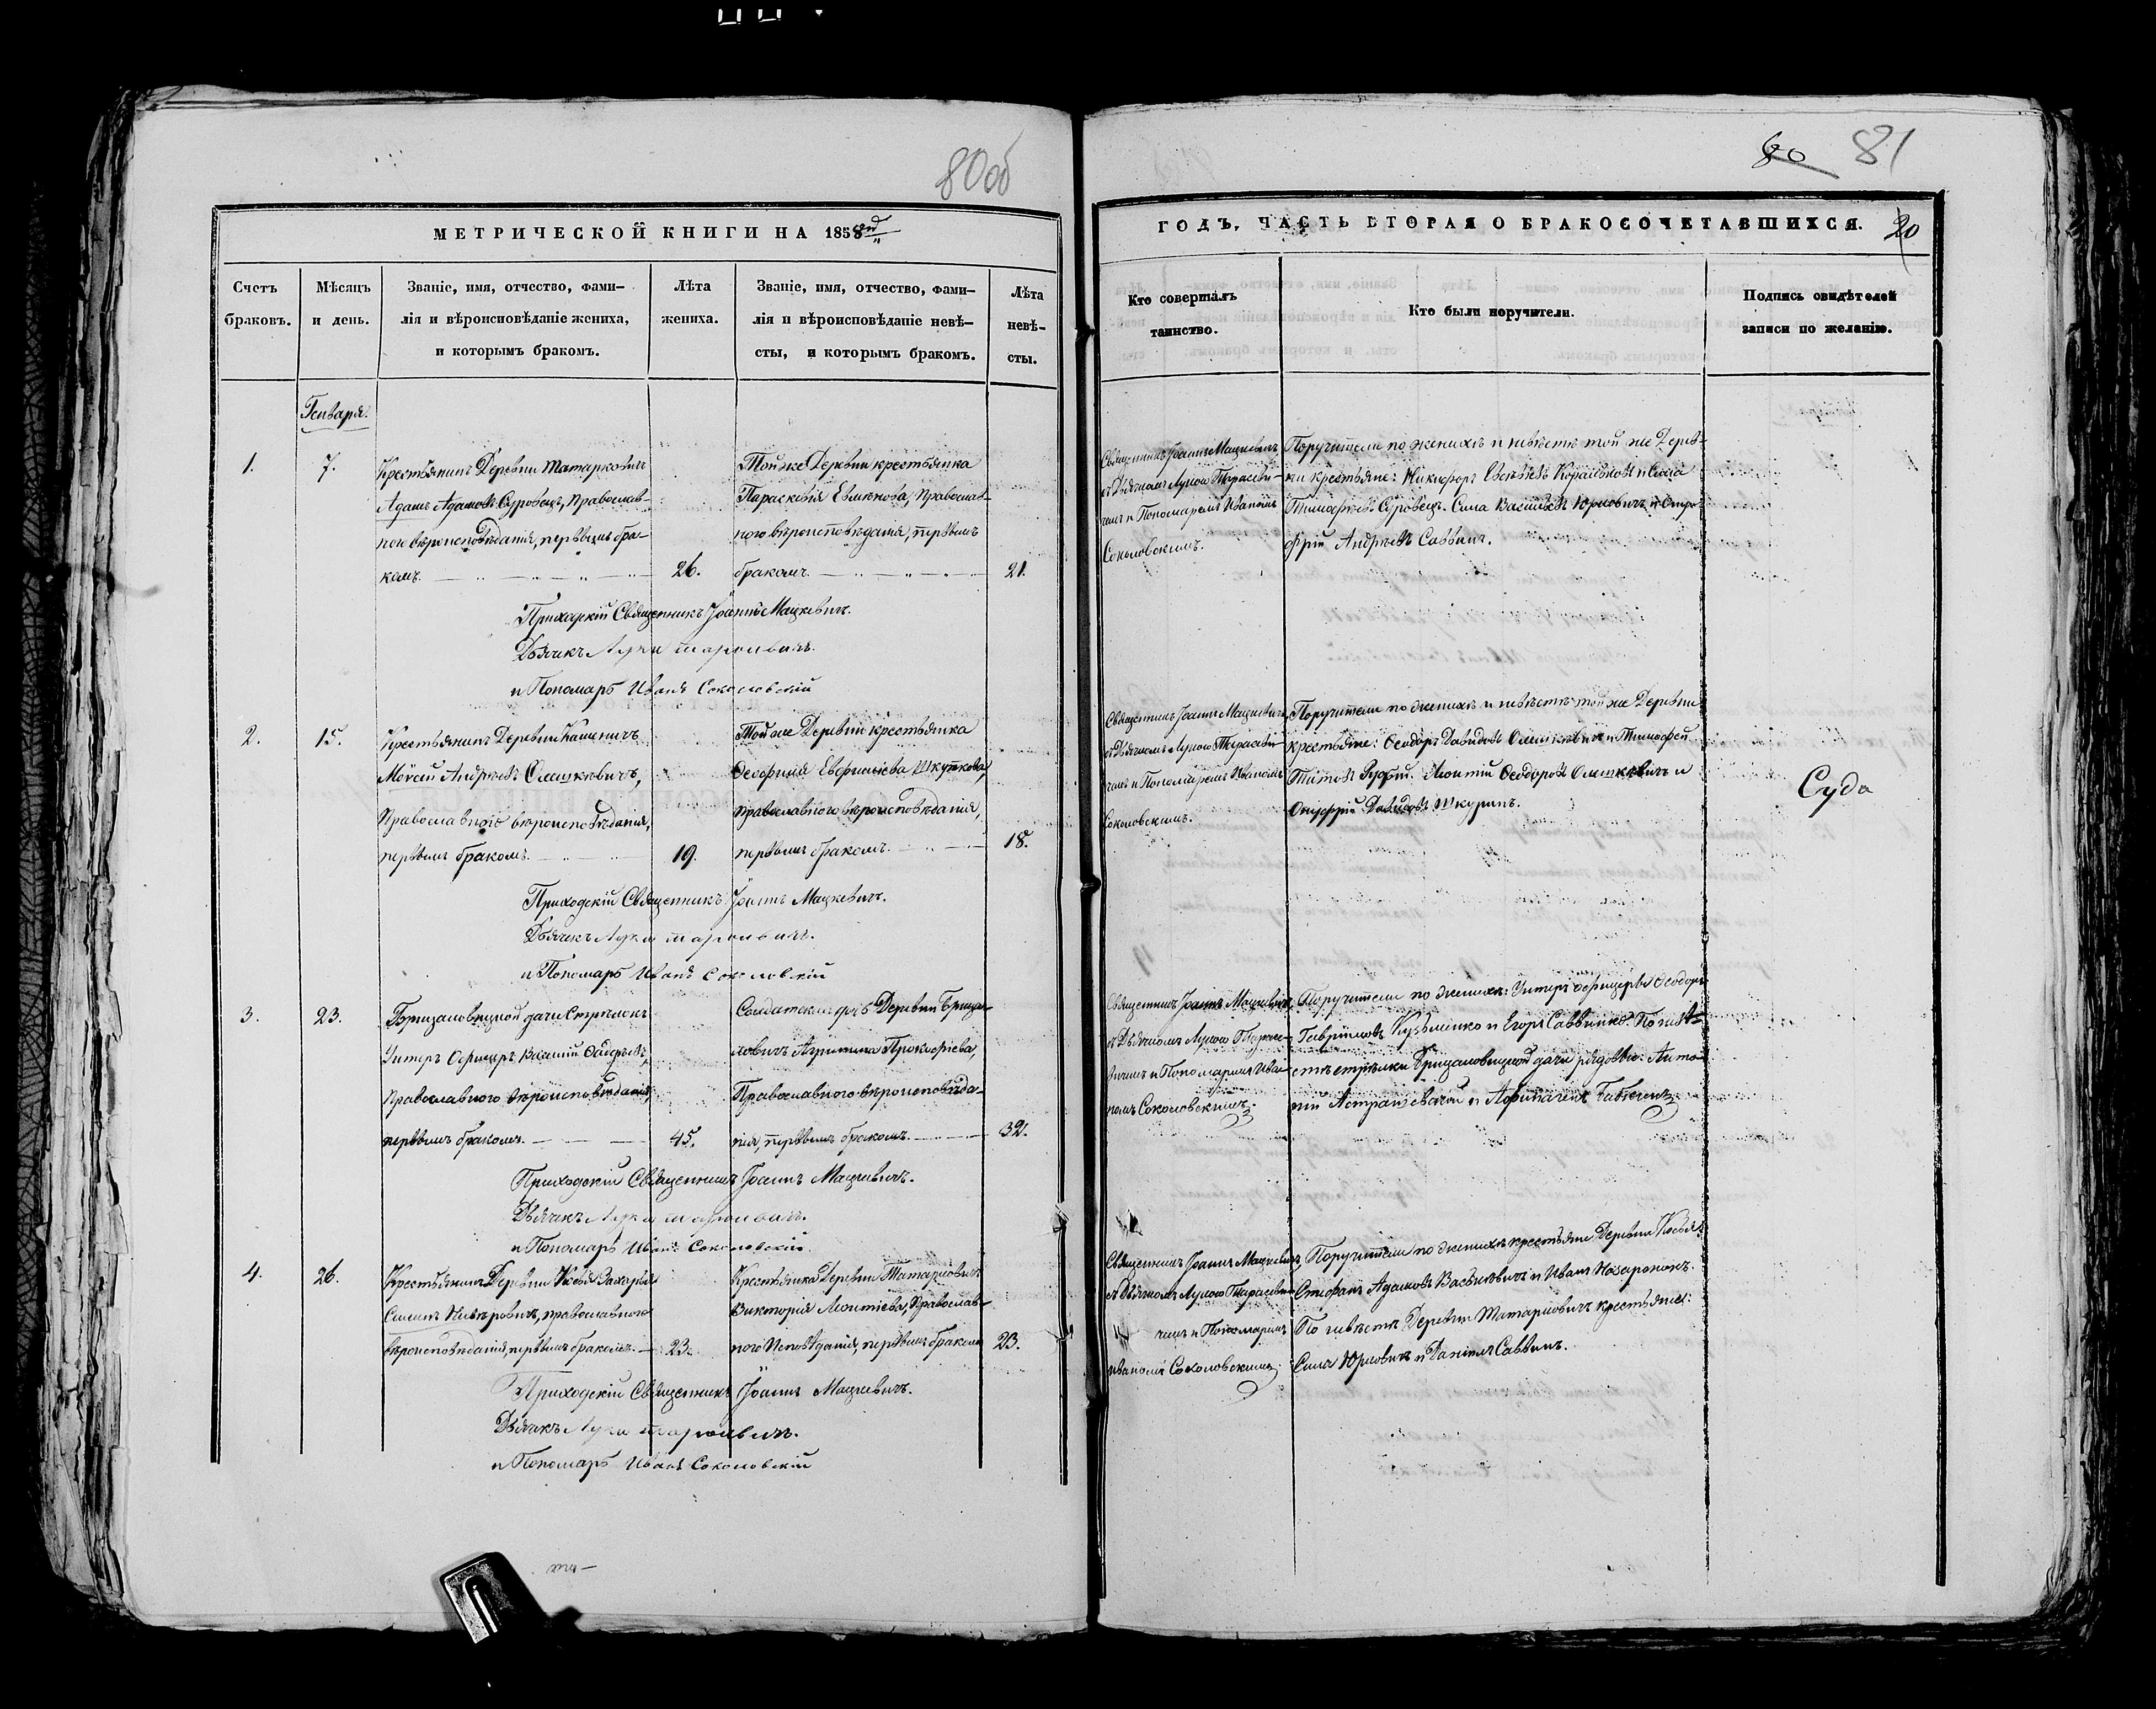 80 об
МЕТРИЧЕСКОЙ КНИГИ НА 1858й
Счетъ браковъ.
Мѣсяцъ и день.
Званіе, имя, отчество, фами-
лія и вѣроисповѣданіе жениха,
и которымъ бракомъ.
Лѣта
жениха.
Званіе, имя, отчество, фами-
лія и вѣроисповѣданіе невѣ-
сты, и которымъ бракомъ.
Лѣта
невѣ-
сты.
Генваря.
1.
7.
Крестьянинъ Деревни Татарковичъ
Адамъ Адамовъ Суровецъ, православ-
ного вѣроисповѣданія, первымъ бра-
комъ.
26.
Той же Деревни крестьянка
Параскевія, Православ-
ного вѣроисповѣданія, первымъ
бракомъ
21.
Приходскій Священникъ Іоаннъ Мацкевичъ.
Дьячикъ Лука Тарасевичъ.
и Пономарь Иванъ Соколовскій
2.
15.
Крестьянинъ Деревни Каменичъ
Моѵсей Андреевъ Олешкевичъ,
Православного вѣроисповѣданія,
первымъ бракомъ.
19.
Той же Деревни крестьянка
Ѳеофилія Евфиміева
православного вѣроисповѣданія,
первымъ бракомъ.
18.
Приходскій Священникъ Іоаннъ Мацкевичъ.
Дьячикъ Лука Тарасевичъ.
и Пономарь Иванъ Соколовскій
3.
23.
дачи Стрѣлокъ
Унтеръ Офицеръ Василій
Православного вѣроисповѣданія,
первымъ бракомъ.
45.
Солдатская Деревни
Прокофіева,
Православного вѣроисповѣда-
нія, первымъ бракомъ.
32.
Приходскій Священникъ Іоаннъ Мацкевичъ.
Дьячикъ Лука Тарасевичъ.
и Пономарь Иванъ Соколовскій.
4.
26.
Крестьянинъ Деревни Захарій
православного
вѣроисповѣданія, первымъ бракомъ.
23.
Крестьянка Деревни Татарковичъ
Викторія Леонтіева, Православ-
ного Исповѣданія, первымъ бракомъ
23.
Приходскій Священникъ Іоаннъ Мацкевичъ.
Дьячикъ Лука Тарасевичъ.
и Пономарь Иванъ Соколовскій
80 81
ГОДЪ, ЧАСТЬ ВТОРАЯ О БРАКОСОЧЕТАВШИХСЯ.
20
Кто совершалъ
таинство.
Кто были поручители.
Подпись свидѣтелей
записи по желанію.
Священникъ Іоаннъ Мацкевичъ
съ Дьячкомъ Лукою Тарасеви-
чемъ и Пономаремъ Иваномъ
Соколовскимъ.
Поручители по женихѣ и невѣстѣ той же Дерев-
ни крестьяне: Никифоръ
Тимофеевъ Суровецъ. Сила Васильевъ Юрковичъ и
Андреевъ Саввичъ.
Священникъ Іоаннъ Мацкевичъ
съ Дьячкомъ Лукою Тарасеви-
чемъ и Пономаремъ Иваномъ
Соколовскимъ.
Поручители по женихѣ и невѣстѣ той же Деревни
крестьяне: Ѳеодоръ Давидовъ Олешкевичъ и Тимофей
Титовъ. Леонтій Ѳеодоровъ Олешкевичъ и
Онуфрій Давидовъ
Суда
Священникъ Іоаннъ Мацкевичъ
съ Дьячкомъ Лукою Тарасе-
вичемъ и Пономаремъ Ива-
номъ Соколовскимъ.
Поручители по женихѣ: Унтеръ офицеры Ѳеодоръ
Гавриловъ Кузьменко и Егоръ Саввинъ. По невѣ-
стѣ стрѣлки дачи рядовые: Анто-
ній
Священникъ Іоаннъ Мацкевичъ
съ Дьячкомъ Лукою Тарасеви-
чемъ и Пономаремъ
Иваномъ Соколовскимъ.
Поручители по женихѣ крестьяне Деревни
Стефанъ Адамовъ и Иванъ
По невѣстѣ Деревни Татарковичъ крестьяне:
Сила Юрковичъ и Даніилъ Саввичъ.